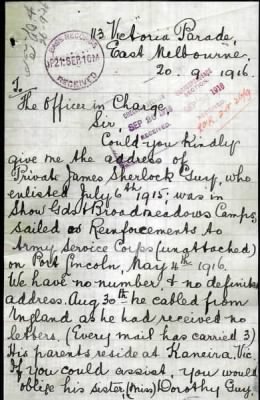 113 Victoria Parade,
East Melbourne.
20. 9. 1916.
BASE RECORDS
P21 SEP 16 M
RECEIVED
To
The Officer in Charge
Sir,
Could you kindly
give me the address of
Private James Sherlock Guy, who
enlisted July 6th 1915; was in
Show Gds & Broadmeadows Camps,
sailed as Reinforcements to
Army Service Corps (unattached)
on Port Lincoln, May 4th 1916.
We have no number, & no definite
address. Aug. 30th he cabled from
England as he had received no
letters. (Every mail has carried 3)
His parents reside at Kaneira, Vic.
If you could assist, you would
oblige his sister, (Miss) Dorothy Guy.